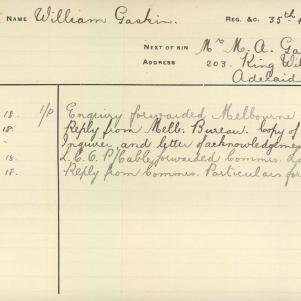 NAME William Gaskin. REG. &C. 35th
NEXT OF KIN Mrs M. A. Ga
ADDRESS 203. King Wil
Adelaid
18. 1/P Enquiry forwarded Melbourne
18. Reply from Melb. Bureau. Copy of
" inquirer, and letter of acknowledgeme
18. L.C.O. P/Cable, forwarded Commis. Lo
18. Reply from Commis. Particulars for